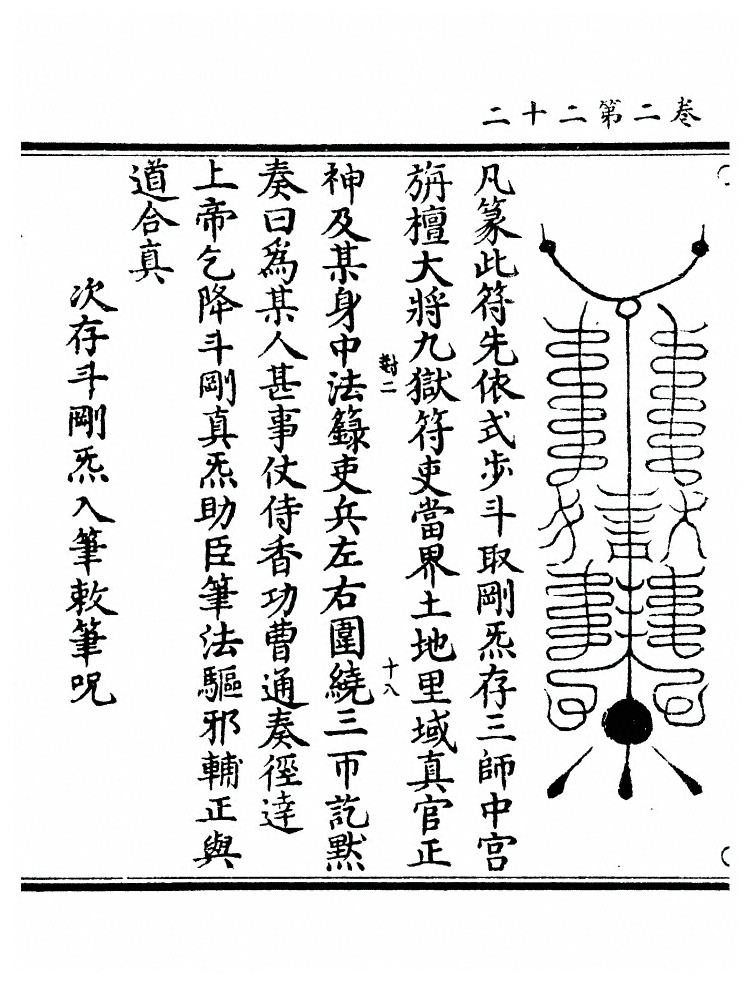 卷二第二十二
凡篆此符先依式步斗取剛炁存三師中宮
旃檀大將九獄符吏當界土地里域真官正
對二
十八
神及某身中法籙吏兵左右圍繞三帀訖默
奏曰為某人甚事仗侍香功曹通奏徑達
上帝乞降斗剛真炁助臣筆法驅邪輔正與
道合真
次存斗剛炁入筆敕筆呪